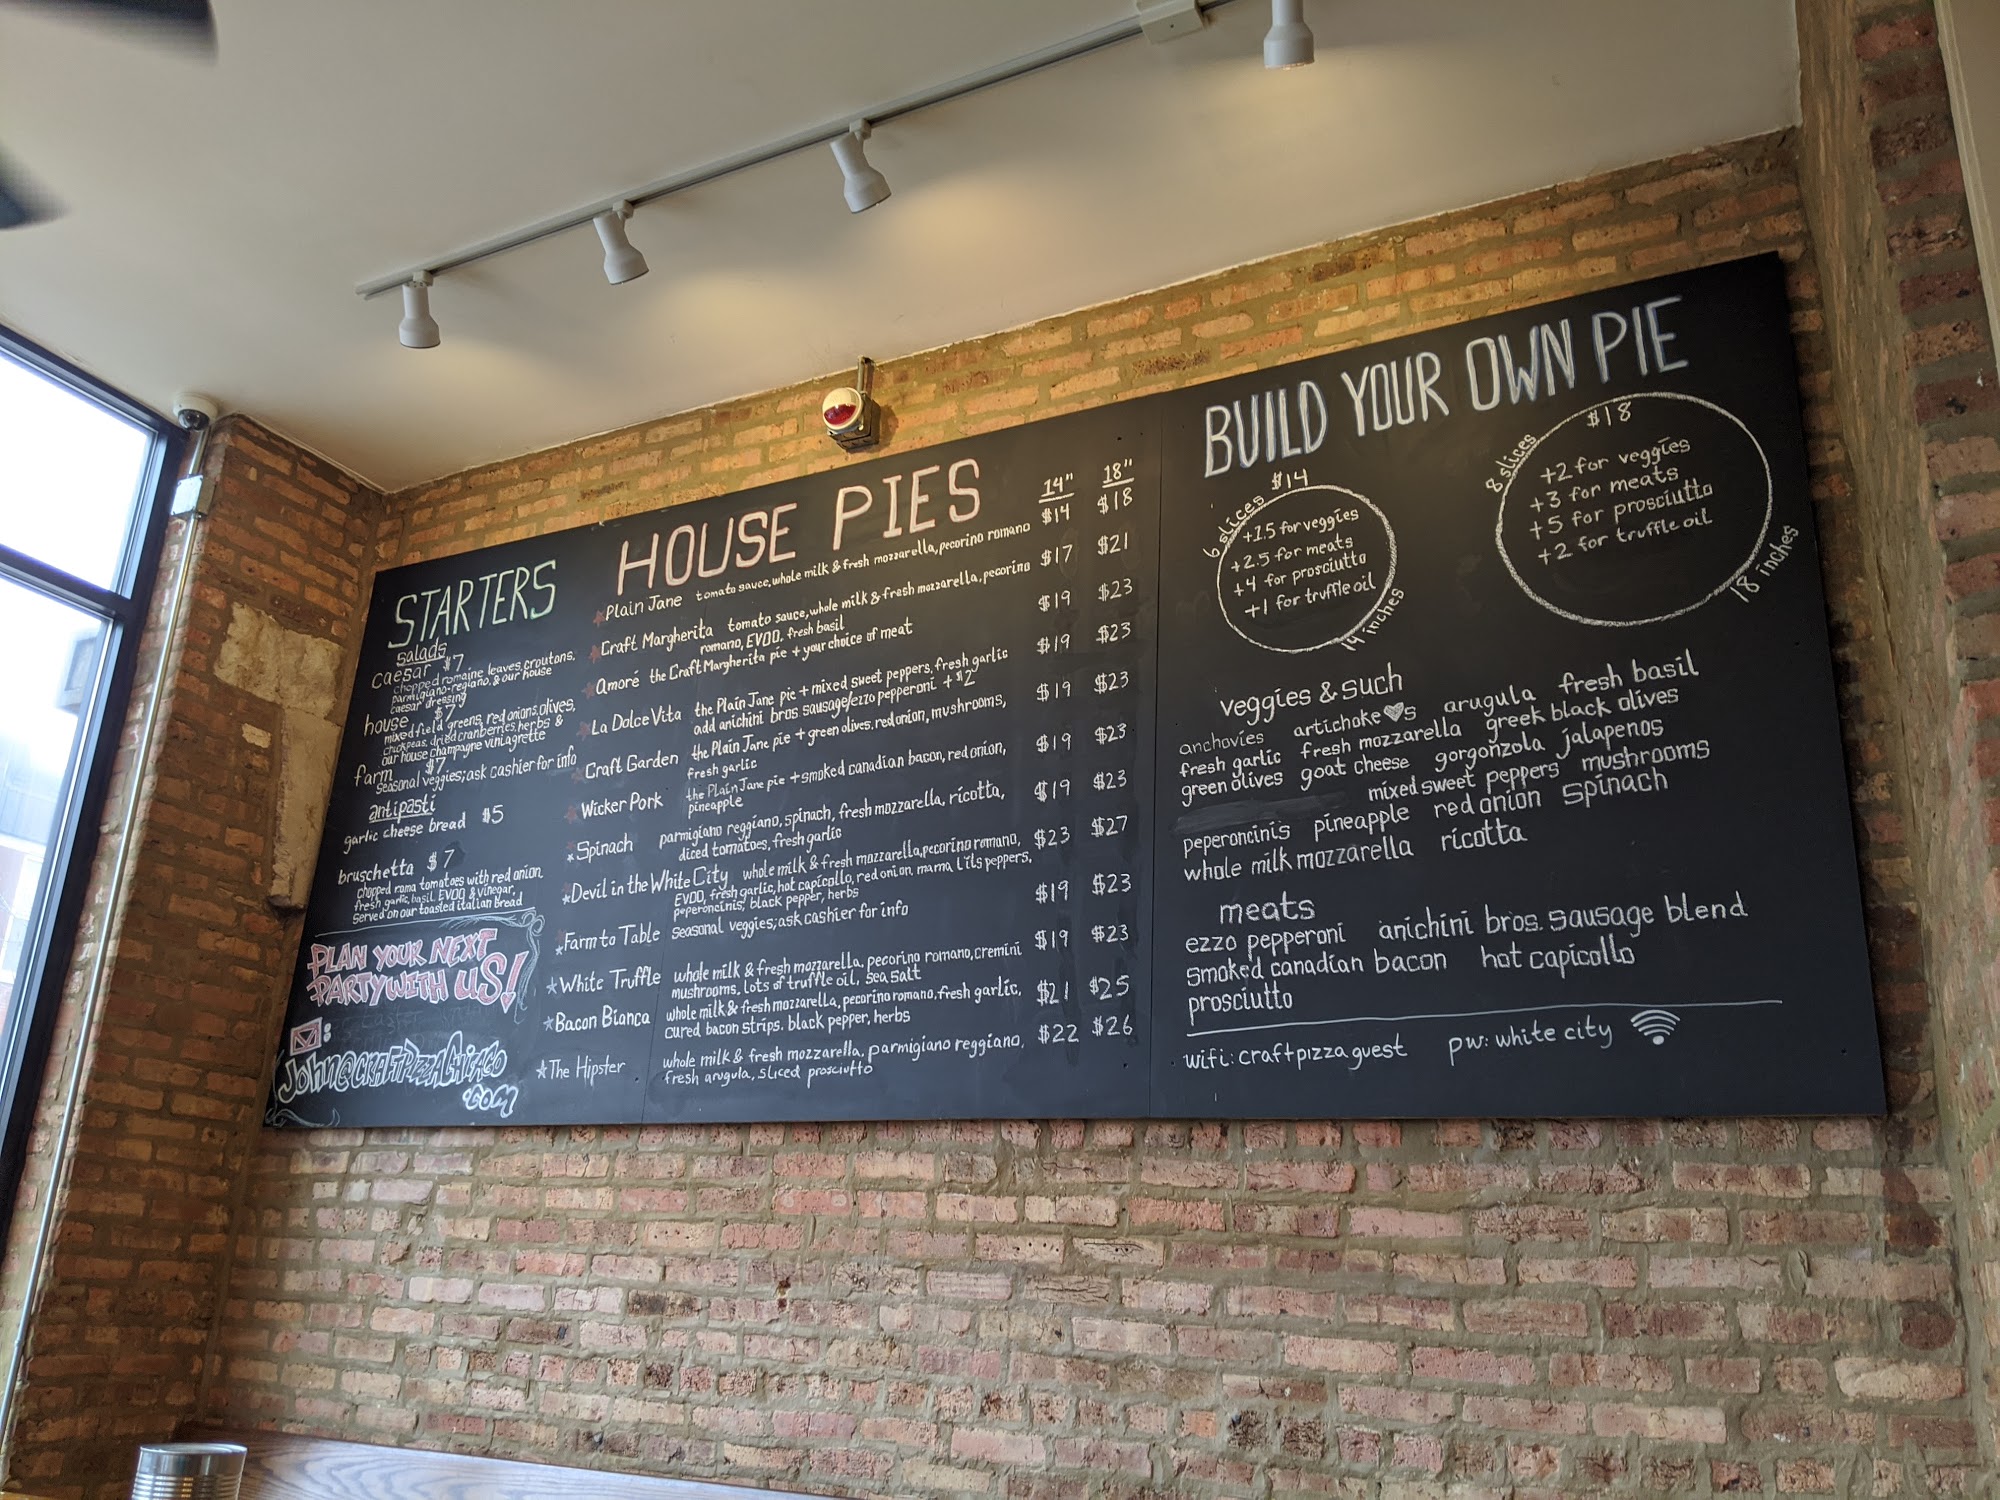 STARTERS
salads
caesar $7
chopped romaine leaves, croutons,
parmigiano-regiano, & our house
caesar dressing
house $7
mixed field greens, red onions, olives,
chickpeas, dried cranberries, herbs &
our house champagne viniagrette
farm $7
seasonal veggies; ask cashier for info
antipasti
garlic cheese bread $5
bruschetta $7
chopped roma tomatoes with red onion,
fresh garlic, basil, EVOO & vinegar,
served on our toasted italian bread
PLAN YOUR NEXT
PARTY WITH US!
John@CRAFTPIZZACHICAGO
.COM
HOUSE PIES
14" 18"
Plain Jane tomato sauce, whole milk & fresh mozzarella, pecorino romano $14 $18
Craft Margherita tomato sauce, whole milk & fresh mozzarella, pecorino $17 $21
romano, EVOO, fresh basil
Amoré the Craft Margherita pie + your choice of meat $19 $23
La Dolce Vita the Plain Jane pie + mixed sweet peppers, fresh garlic $19 $23
add anichini bros sausage/ezzo pepperoni + $2
Craft Garden the Plain Jane pie + green olives, red onion, mushrooms, $19 $23
fresh garlic
Wicker Pork the Plain Jane pie + smoked canadian bacon, red onion, $19 $23
pineapple
Spinach parmigiano reggiano, spinach, fresh mozzarella, ricotta, $19 $23
diced tomatoes, fresh garlic
Devil in the White City whole milk & fresh mozzarella, pecorino romano, $23 $27
EVOO, fresh garlic, hot capicollo, red onion, mama lil's peppers,
peperoncinis, black pepper, herbs
Farm to Table seasonal veggies; ask cashier for info $19 $23
White Truffle whole milk & fresh mozzarella, pecorino romano, cremini $19 $23
mushrooms, lots of truffle oil, sea salt
Bacon Bianca whole milk & fresh mozzarella, pecorino romano, fresh garlic, $21 $25
cured bacon strips, black pepper, herbs
The Hipster whole milk & fresh mozzarella, parmigiano reggiano, $22 $26
fresh arugula, sliced prosciutto
BUILD YOUR OWN PIE
6 slices $14
+1.5 for veggies
+2.5 for meats
+4 for prosciutto
+1 for truffle oil
14 inches
8 slices $18
+2 for veggies
+3 for meats
+5 for prosciutto
+2 for truffle oil
18 inches
veggies & such
anchovies artichoke ♥s arugula fresh basil
fresh garlic fresh mozzarella greek black olives
green olives goat cheese gorgonzola jalapenos
mixed sweet peppers mushrooms
peperoncinis pineapple red onion spinach
whole milk mozzarella ricotta
meats
ezzo pepperoni anichini bros. sausage blend
smoked canadian bacon hot capicollo
prosciutto
wifi: craftpizzaguest pw: white city